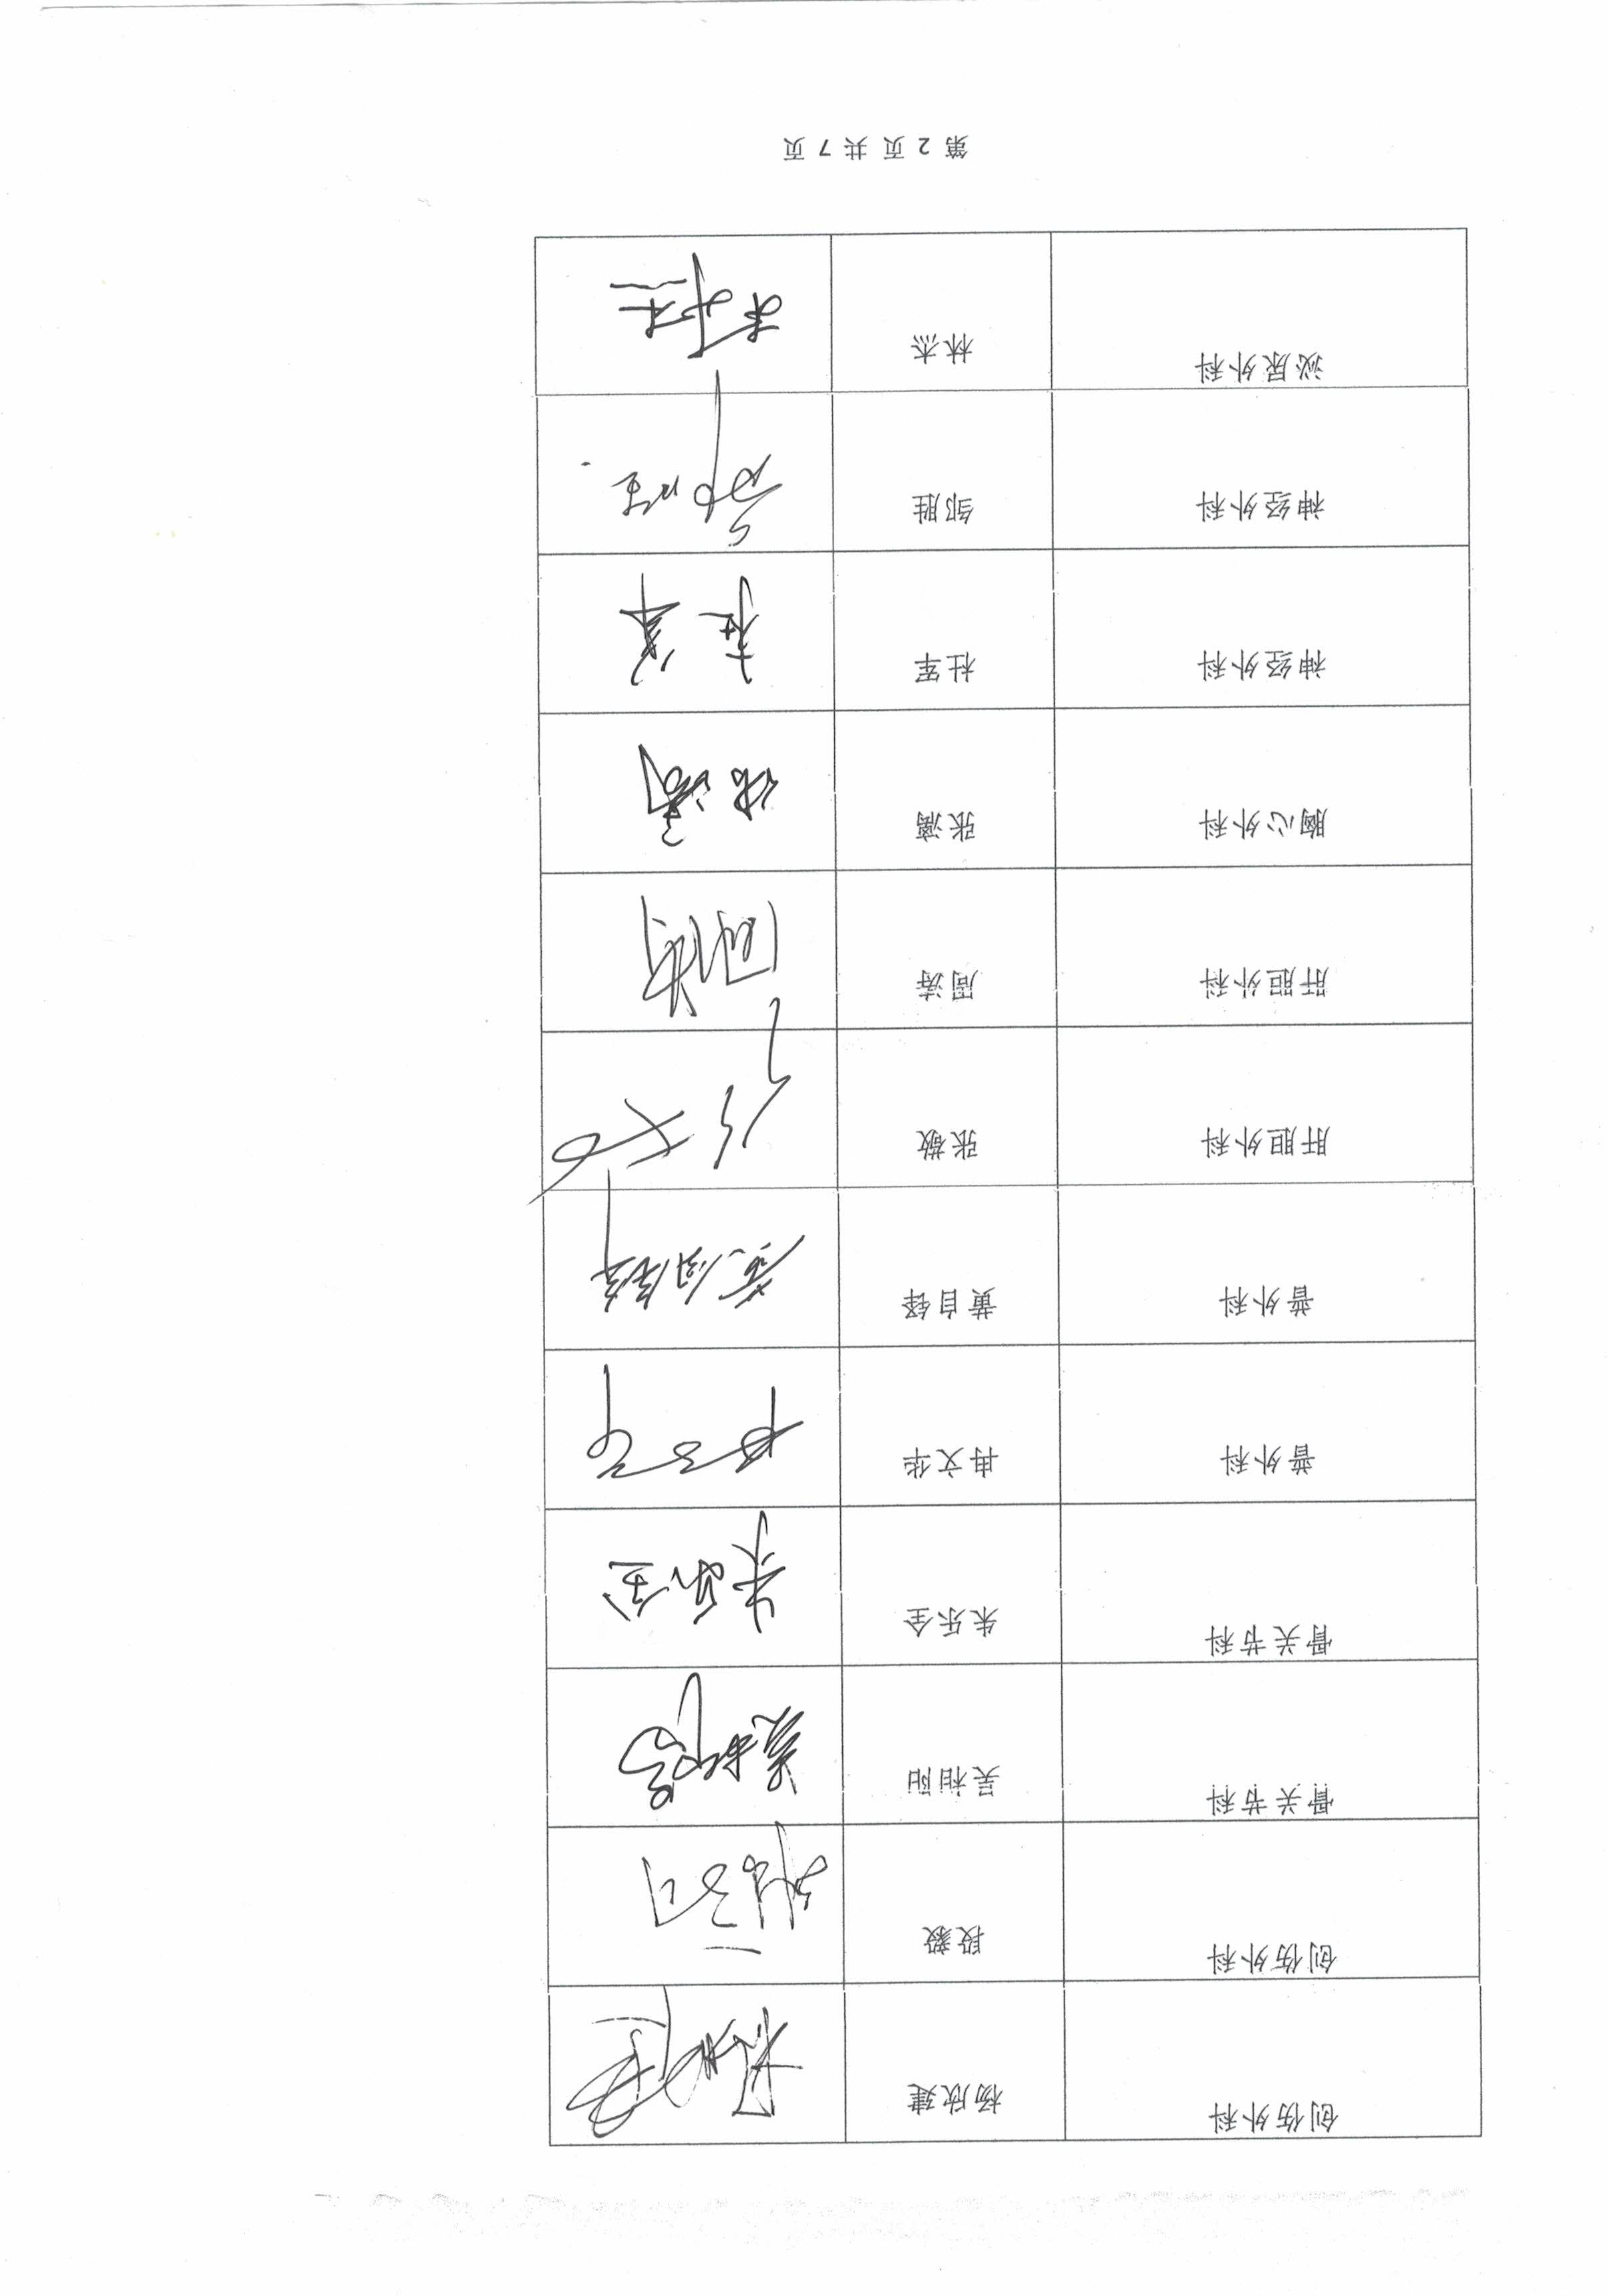 创伤外科 杨欣建
创伤外科 段毅
骨关节科 吴相阳
骨关节科 朱乐全 朱乐全
普外科 冉文华
普外科 黄自铎
肝胆外科 张敏
肝胆外科 周涛 周涛
胸心外科 张漓 张漓
神经外科 杜军 杜军
神经外科 邹胜 邹胜
泌尿外科 林杰 林杰
第 2 页 共 7 页